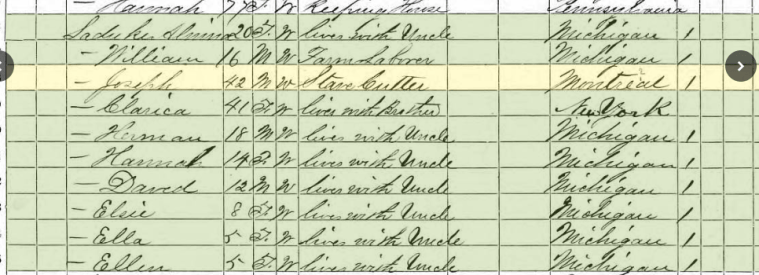 — Hannah 77 F. W Keeping House Pennsylvania
20 F. W lives with Uncle Michigan 1
— William 16 M W Farm Laborer Michigan 1
— Joseph 42 M W Stave Cutter Montreal 1
— Clarica 41 F. W lives with Brother New York 1
— Herman 18 M W lives with Uncle Michigan 1
— Hannah 14 F. W lives with Uncle Michigan 1
— David 12 M W lives with Uncle Michigan 1
— Elsie 8 F. W lives with Uncle Michigan 1
— Ella 5 F. W lives with Uncle Michigan 1
— Ellen 5 F. W lives with Uncle Michigan 1